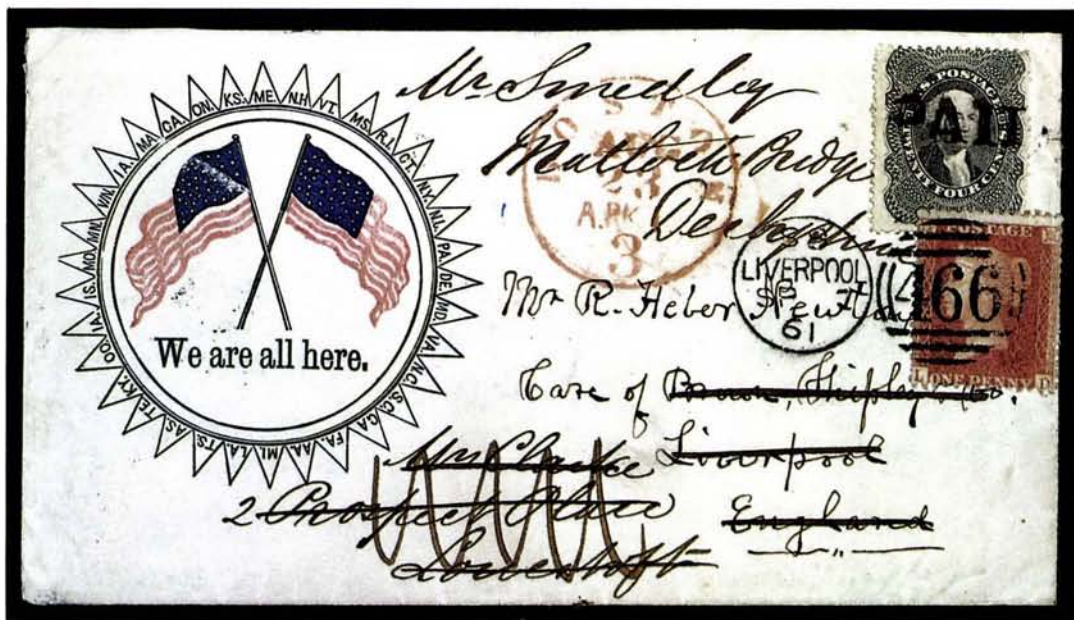 ME. N.H VT. MS. R.I. CT. N.Y. N.L. PA. DE. MD. VA. N.C. S.C. GA. FA. AA. MI. LA. TS. AS. TE. KY. OO. IA. IS. MO. MN. WN. IA. MA. CA. ON. KS.
We are all here.
Mr Smedley
Matlock Bridge
Derbyshire
U.S. POSTAGE
PAID
TWENTY FOUR CENTS
A.PK
3
LIVERPOOL
61
466
POSTAGE
L ONE PENNY D
Mr R. Heber Newton
Care of Brown, Shipley & Co.
Liverpool
England
Mrs Clarke
2 Prospect Place
Lowestoft